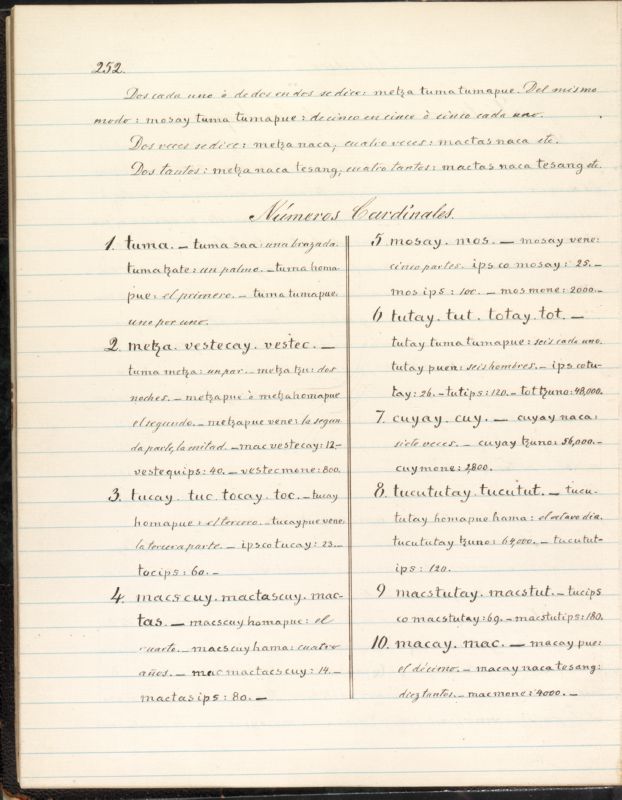 252.
Dos cada uno ò de dos en dos se dice: metza tuma tumapue. Del mismo
modo: mosay tuma tumapue: de cinco en cinco ò cinco cada uno.
Dos veces se dice: metza naca, cuatro veces: mactas naca etc.
Dos tantos: metza naca tesang, cuatro tantos: mactas naca tesang etc.
Números Cardinales.
1. tuma. – tuma saa: una brazada.
tuma tzate: un palmo. – tuma homa-
pue: el primero. – tuma tumapue:
uno por uno.
2. metza. vestecay. vestec. –
tuma metza: un par. – metza tzu: dos
noches. – metzapue ò metzahomapue
el segundo. – metzapue vene: la segun-
da parte, la mitad. – mac vestecay: 12. –
vestequips: 40. – vestecmone: 800.
3. tucay. tuc. tocay. toc. – tucay
homapue: el tercero. – tucaypue vene
la tercera parte. – ipsco tucay: 23. –
tocips: 60. –
4. macscuy. mactascuy. mac-
tas. – macscuy homapue: el
cuarto. – macscuy hama: cuatro
años. – mac mactascuy: 14. –
mactas ips: 80. –
5 mosay. mos. – mosay vene:
cinco partes. ips co mosay: 25. –
mos ips: 100. – mos mone: 2000. –
6 tutay. tut. totay. tot. –
tutay tuma tumapue: seis cada uno.
tutay puen: seis hombres. – ips cotu-
tay: 26. – tutips: 120. – tot tzuno: 48,000.
7. cuyay. cuy. – cuyay naca:
siete veces. – cuyay tzuno: 56,000. –
cuymone: 2,800.
8. tucututay. tucutut. – tucu-
tutay homapue hama: el octavo dia.
tucututay tzuno: 64,000. – tucutut-
ips: 120.
9 macstutay. macstut. – tucips
co macstutay: 69. – macstutips: 180.
10. macay. mac. – macay pue:
el décimo. – macay naca tesang:
diez tantos. – macmone: 4000. –